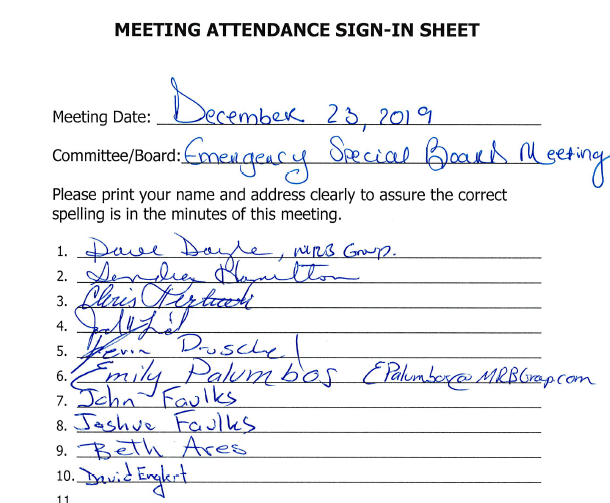 MEETING ATTENDANCE SIGN-IN SHEET
Meeting Date: December 23, 2019
Committee/Board: Emergency Special Board Meeting
Please print your name and address clearly to assure the correct
spelling is in the minutes of this meeting.
1. Dave Doyle, MRB Group.
2. Sandra Hamilton
3. Chris
4.
5. Kevin Druschel
6. Emily Palumbos EPalumbos@MRBGroup.com
7. John Faulks
8. Joshua Faulks
9. Beth Ares
10. David Englert
11